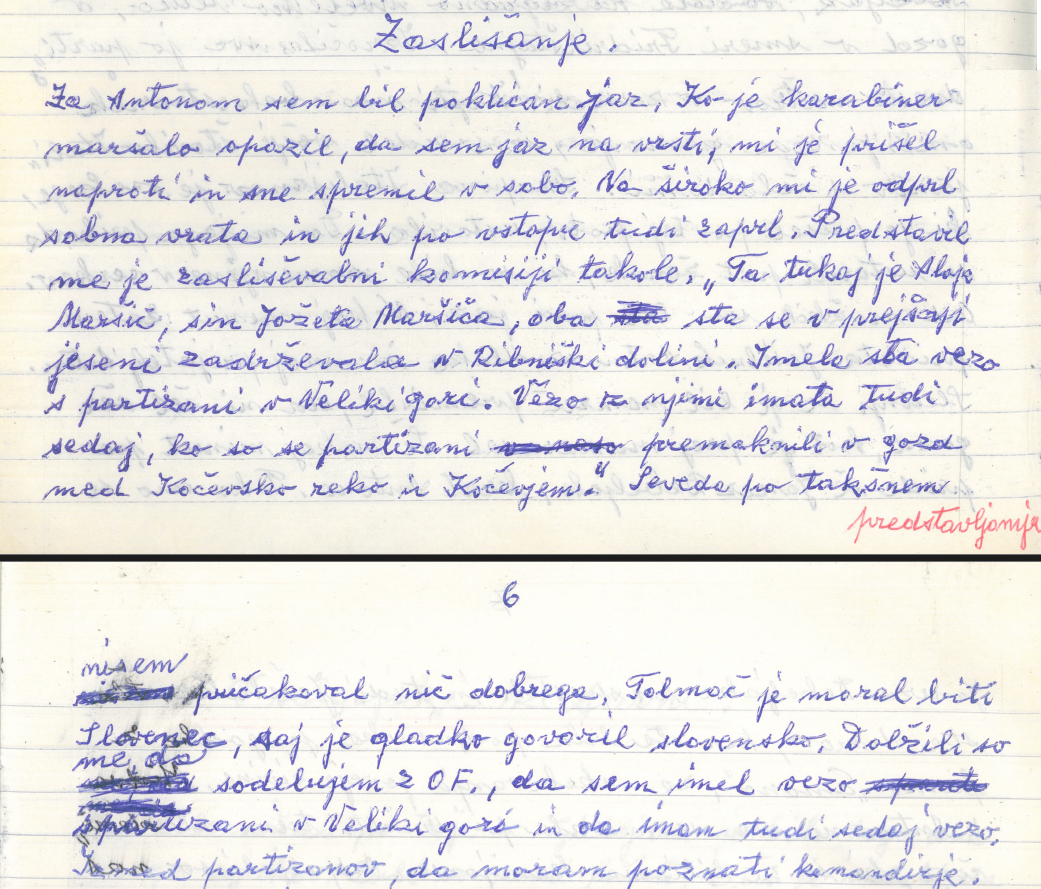 Zaslišanje.
Za Antonom sem bil poklican jaz. Ko je karabiner
maršalo opazil, da sem jaz na vrsti, mi je prišel
naproti in me spremil v sobo. Na široko mi je odprl
sobna vrata in jih po vstopu tudi zaprl. Predstavil
me je zasliševalni komisiji takole. „Ta tukaj je Alojz
Maršič, sin Jožeta Maršiča, oba sta se v prejšnji
jeseni zadrževala v Ribniški dolini. Imela sta vezo
s partizani v Veliki gori. Vezo z njimi imata tudi
sedaj, ko so se partizani premaknili v gozd
med Kočevsko reko in Kočevjem." Seveda po takšnem
predstavljanju
6
nisem
pričakoval nič dobrega. Tolmač je moral biti
Slovenec, saj je gladko govoril slovensko. Dolžili so
me, da
sodelujem z OF., da sem imel vezo
s partizani v Veliki gori in da imam tudi sedaj vezo.
partizanov, da moram poznati komandirje.